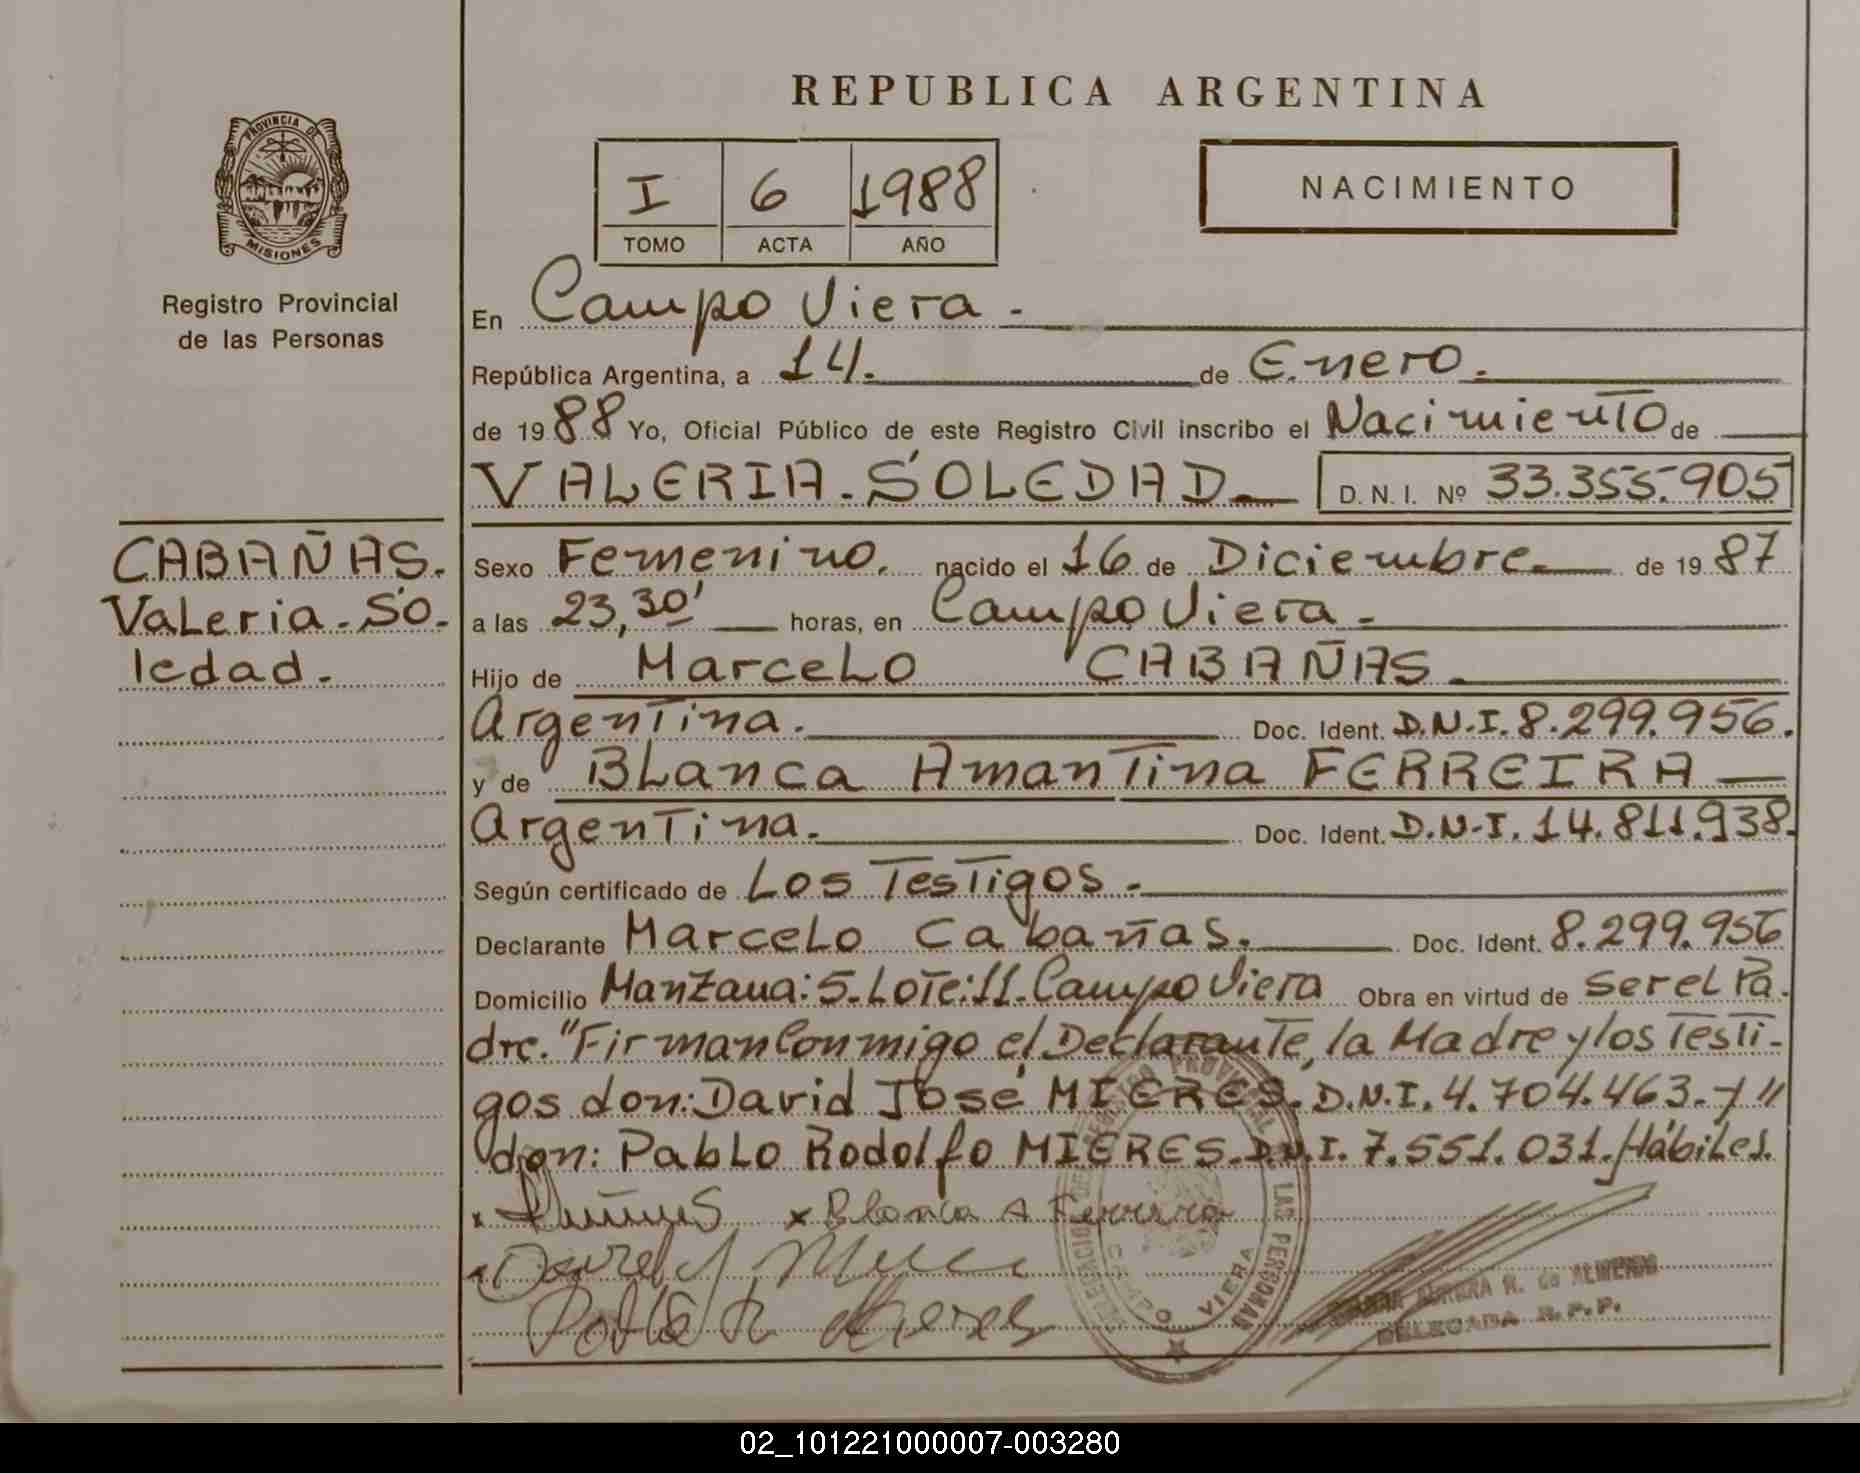 REPUBLICA ARGENTINA
PROVINCIA DE
MISIONES
Registro Provincial
de las Personas
I 6 1988
TOMO ACTA AÑO
NACIMIENTO
En Campo Viera.
República Argentina, a 14. de Enero.
de 1988 Yo, Oficial Público de este Registro Civil inscribo el Nacimiento de
VALERIA. SOLEDAD D. N. I. Nº 33.355.905
CABAÑAS.
Valeria. So.
ledad.
Sexo Femenino. nacido el 16 de Diciembre. de 1987
a las 23,30' horas, en Campo Viera.
Hijo de Marcelo CABAÑAS.
Argentina. Doc. Ident. D.N.I. 8.299.956.
y de Blanca Amantina FERREIRA
Argentina. Doc. Ident. D.N.I. 14.811.938.
Según certificado de Los Testigos.
Declarante Marcelo Cabañas. Doc. Ident. 8.299.956
Domicilio Manzana: 5. Lote: 11. Campo Viera Obra en virtud de ser el Pa.
dre. "Firman Conmigo el Declarante, la Madre y los Testi-
gos don: David José MIERES. D.N.I. 4.704.463. y "
don: Pablo Rodolfo MIERES. D.N.I. 7.551.031. Hábiles.
x x Blanca A Ferreira
DELEGACION DEL REGISTRO PROVINCIAL DE LAS PERSONAS
CAMPO VIERA
AURORA R. de ALMEIDA
DELEGADA R.P.P.
02_101221000007-003280